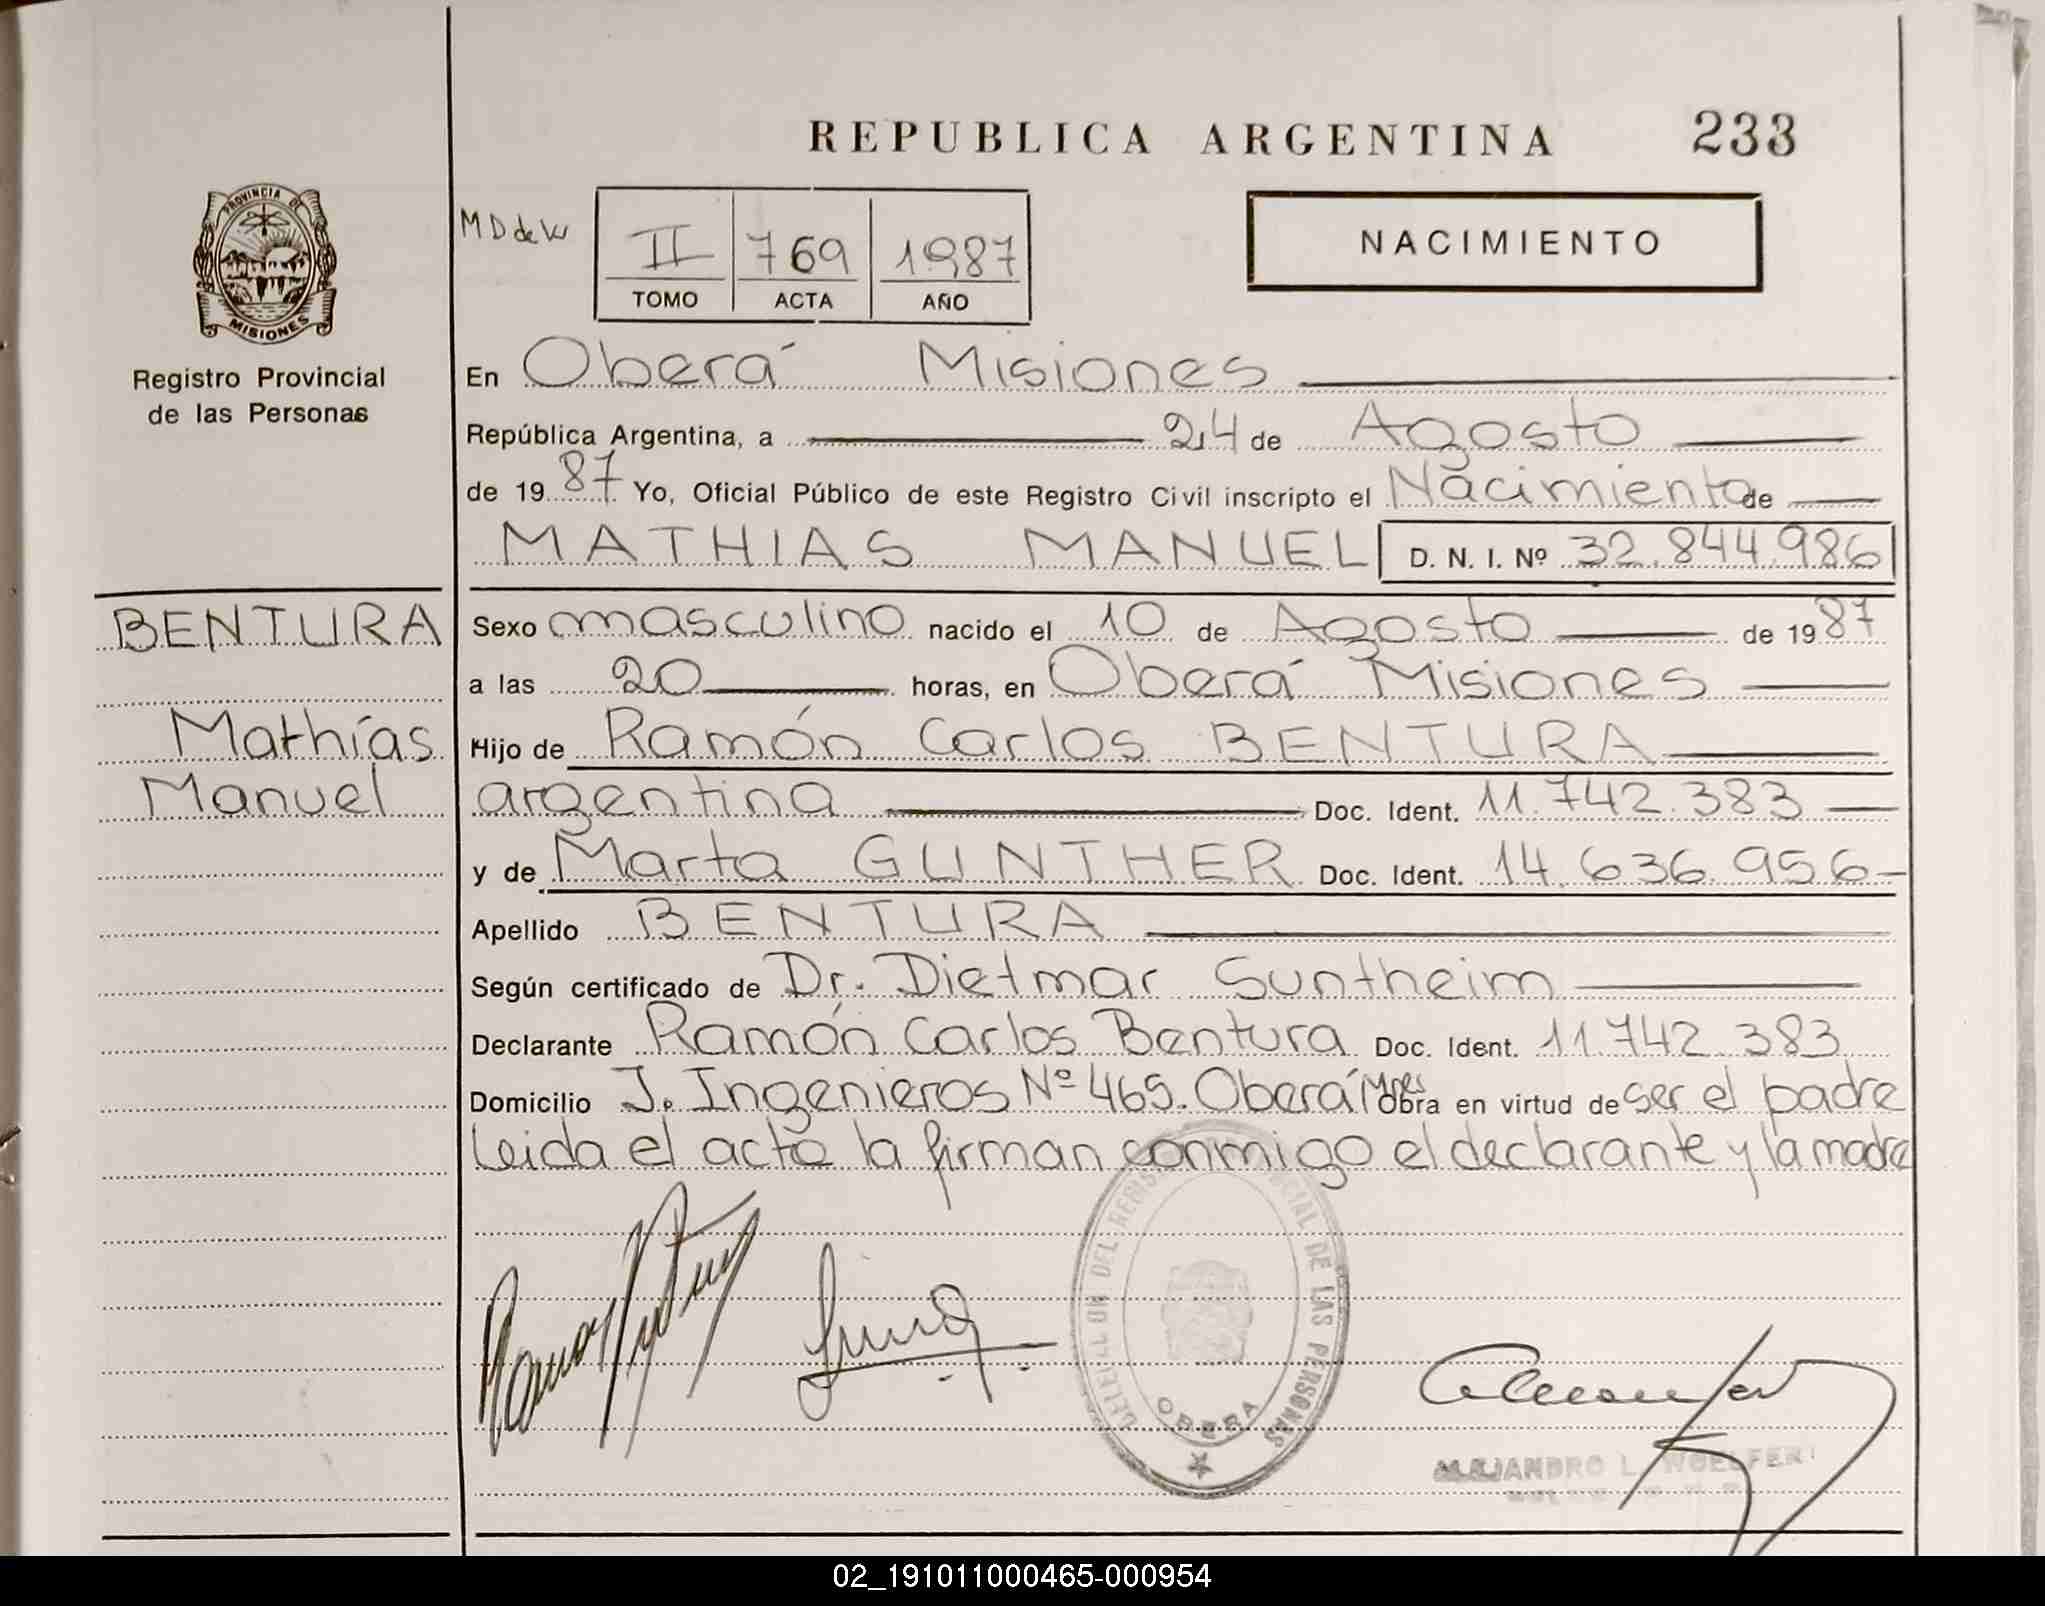 REPUBLICA ARGENTINA 233
PROVINCIA DE
MISIONES
Registro Provincial
de las Personas
MD de W
II 769 1987
TOMO ACTA AÑO
NACIMIENTO
En Oberá Misiones
República Argentina, a 24 de Agosto
de 1987 Yo, Oficial Público de este Registro Civil inscripto el Nacimiento de
MATHIAS MANUEL D. N. I. Nº 32.844.986
BENTURA
Mathías
Manuel
Sexo masculino nacido el 10 de Agosto de 1987
a las 20 horas, en Oberá Misiones
Hijo de Ramón Carlos BENTURA
argentina Doc. Ident. 11.742.383
y de Marta GUNTHER Doc. Ident. 14.636.956
Apellido BENTURA
Según certificado de Dr. Dietmar Suntheim
Declarante Ramón Carlos Bentura Doc. Ident. 11.742.383
Domicilio J. Ingenieros Nº 465. Oberá Mnes Obra en virtud de ser el padre
Leida el acta la firman conmigo el declarante y la madre
DEL REGISTRO PROVINCIAL DE LAS PERSONAS
OBERA
ALEJANDRO L. WOELFERT
02_191011000465-000954